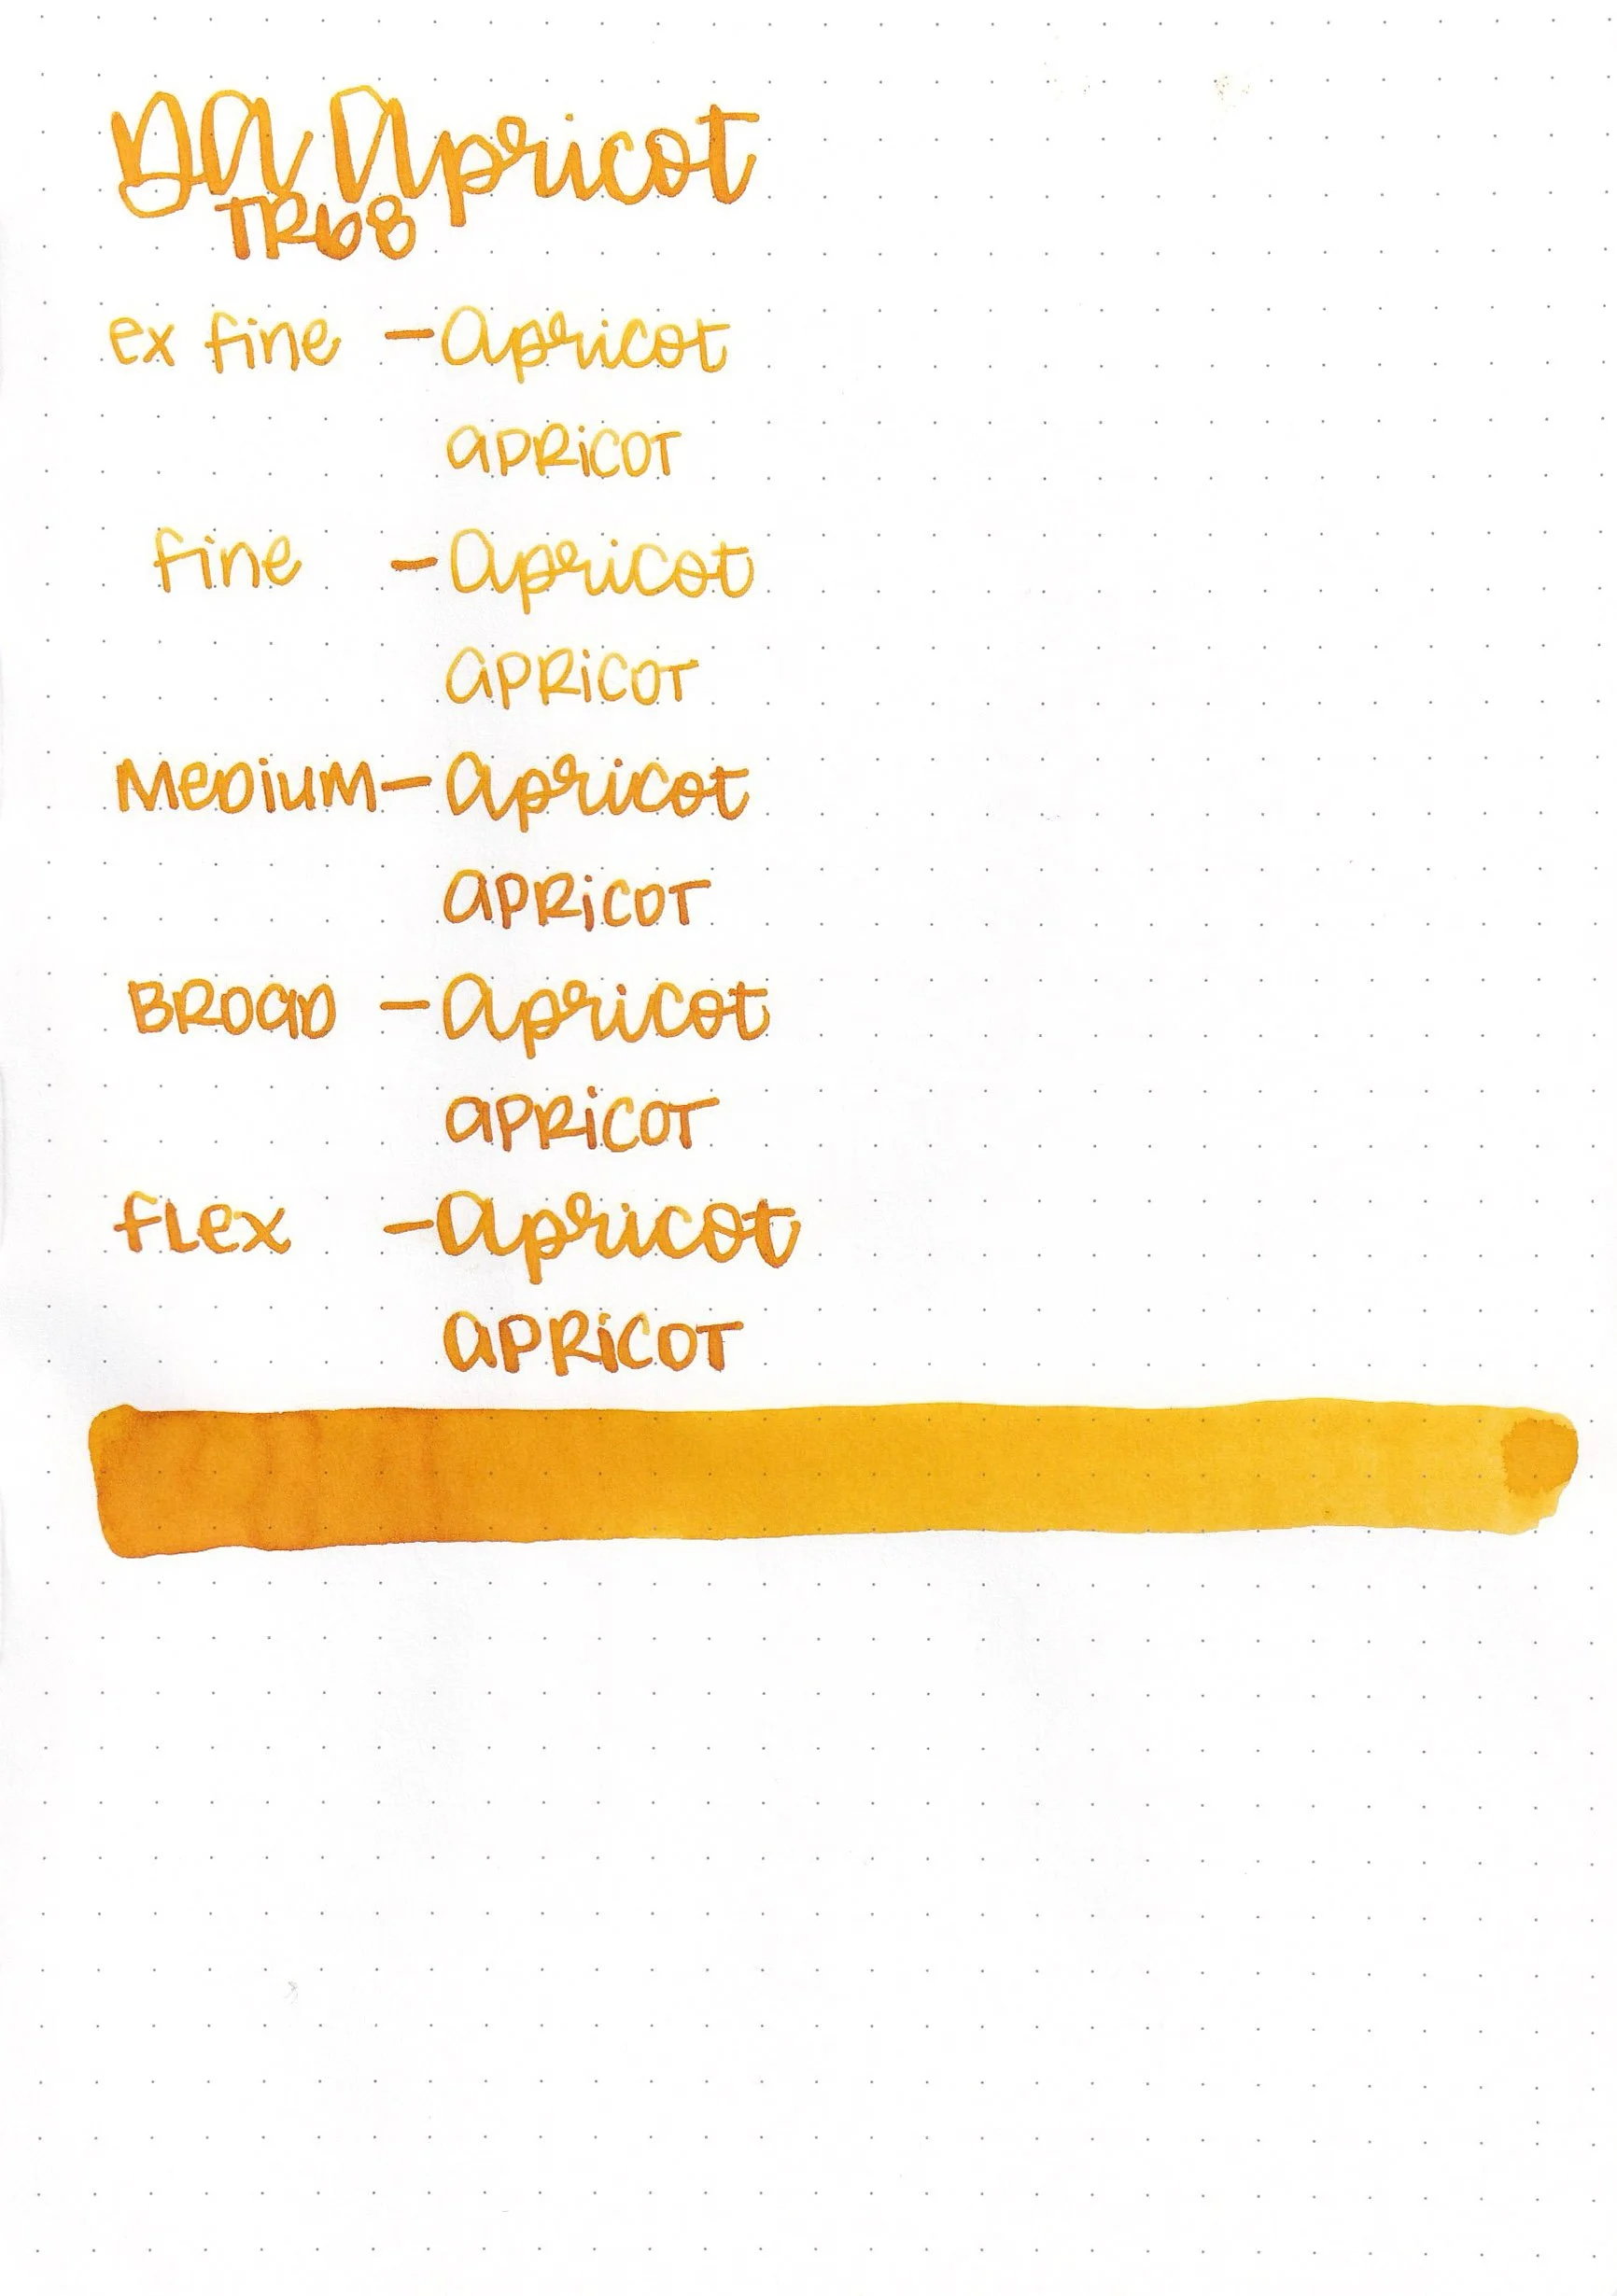 DA Apricot
TR68
ex fine - Apricot
APRiCOT
fine - Apricot
APRiCOT
MeDiuM - Apricot
APRiCOT
BROaD - Apricot
APRiCOT
fLex - Apricot
APRiCOT